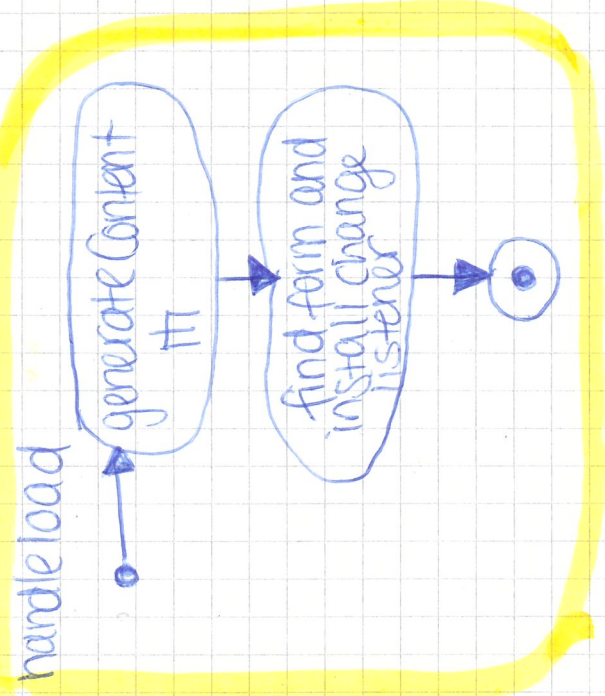 handleload
generateContent
find form and
install change
listener